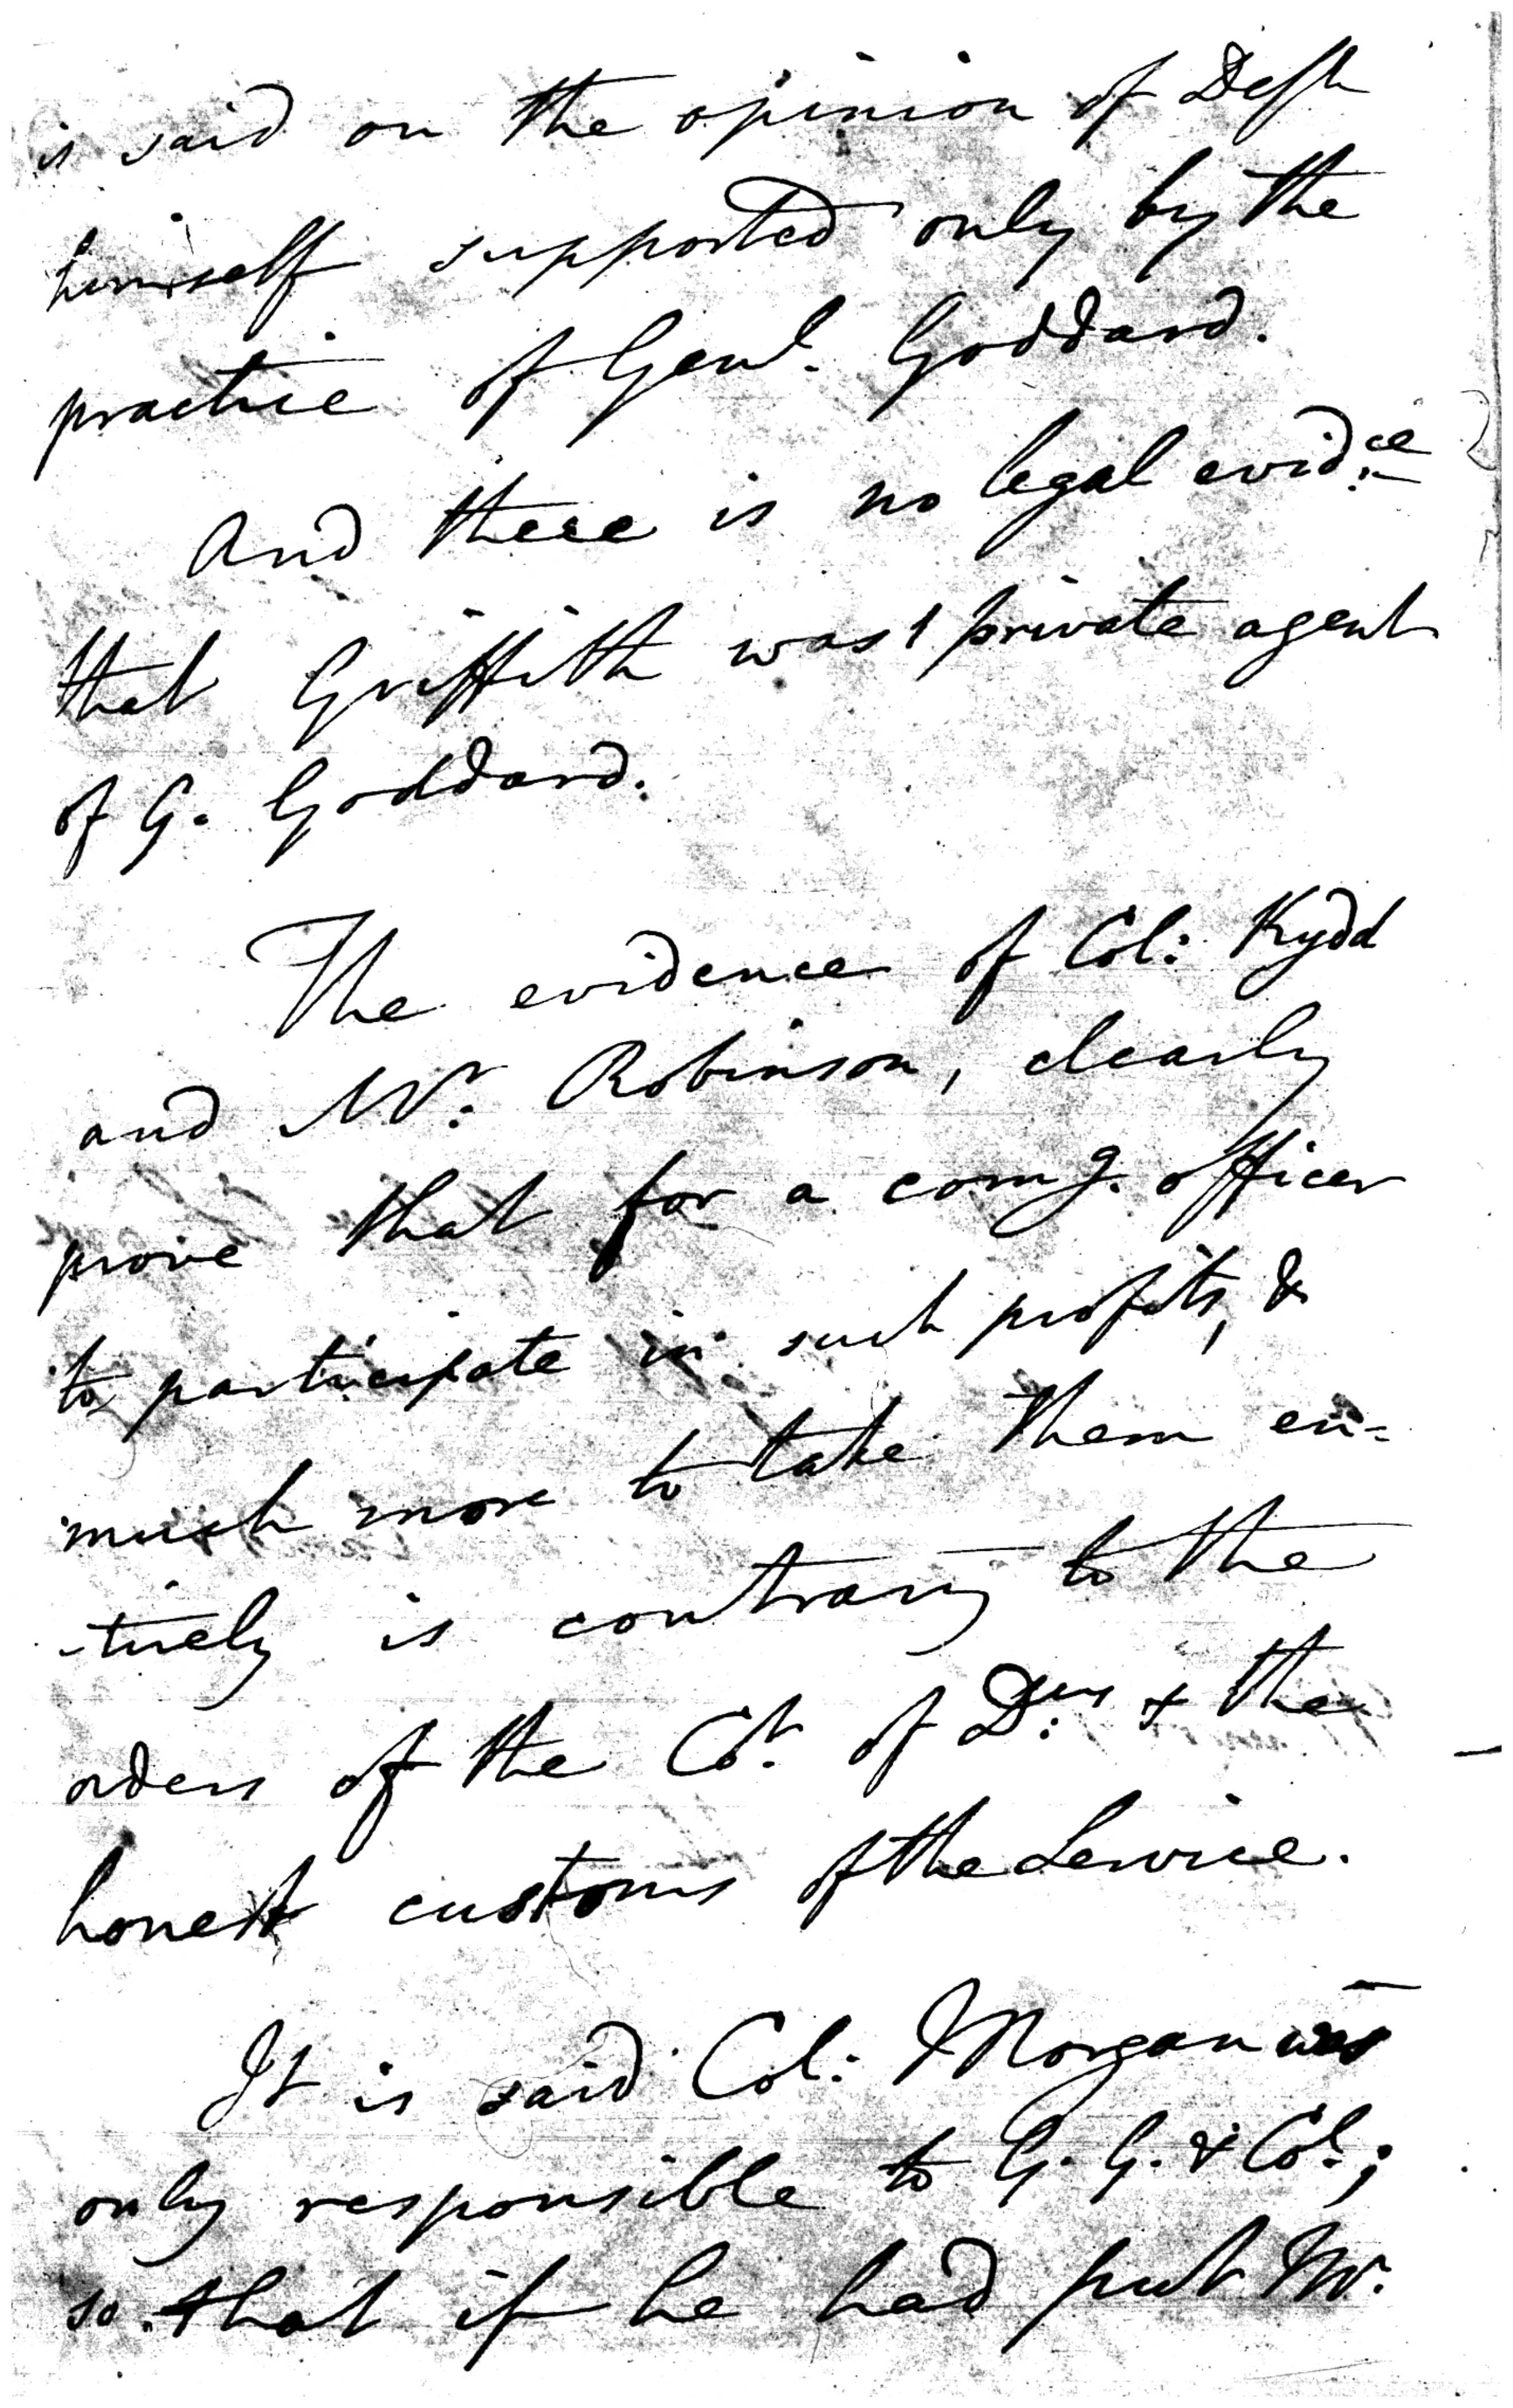 is said on the opinion of Deft
himself supported only by the
practice of Genl. Goddard.
And there is no legal evid:ce
that Griffith was private agent
of G. Goddard.
The evidence of Col: Kydd
and Mr. Robinson, clearly
prove that for a comg. officer
to participate in such profits, &
much more to take them en=
-tirely is contrary to the
orders of the Ct. of D:rs & the
honest customs of the Service.
It is said Col: Morgan was
only responsible to G. G. & Col.;
so that if he had put Mr.